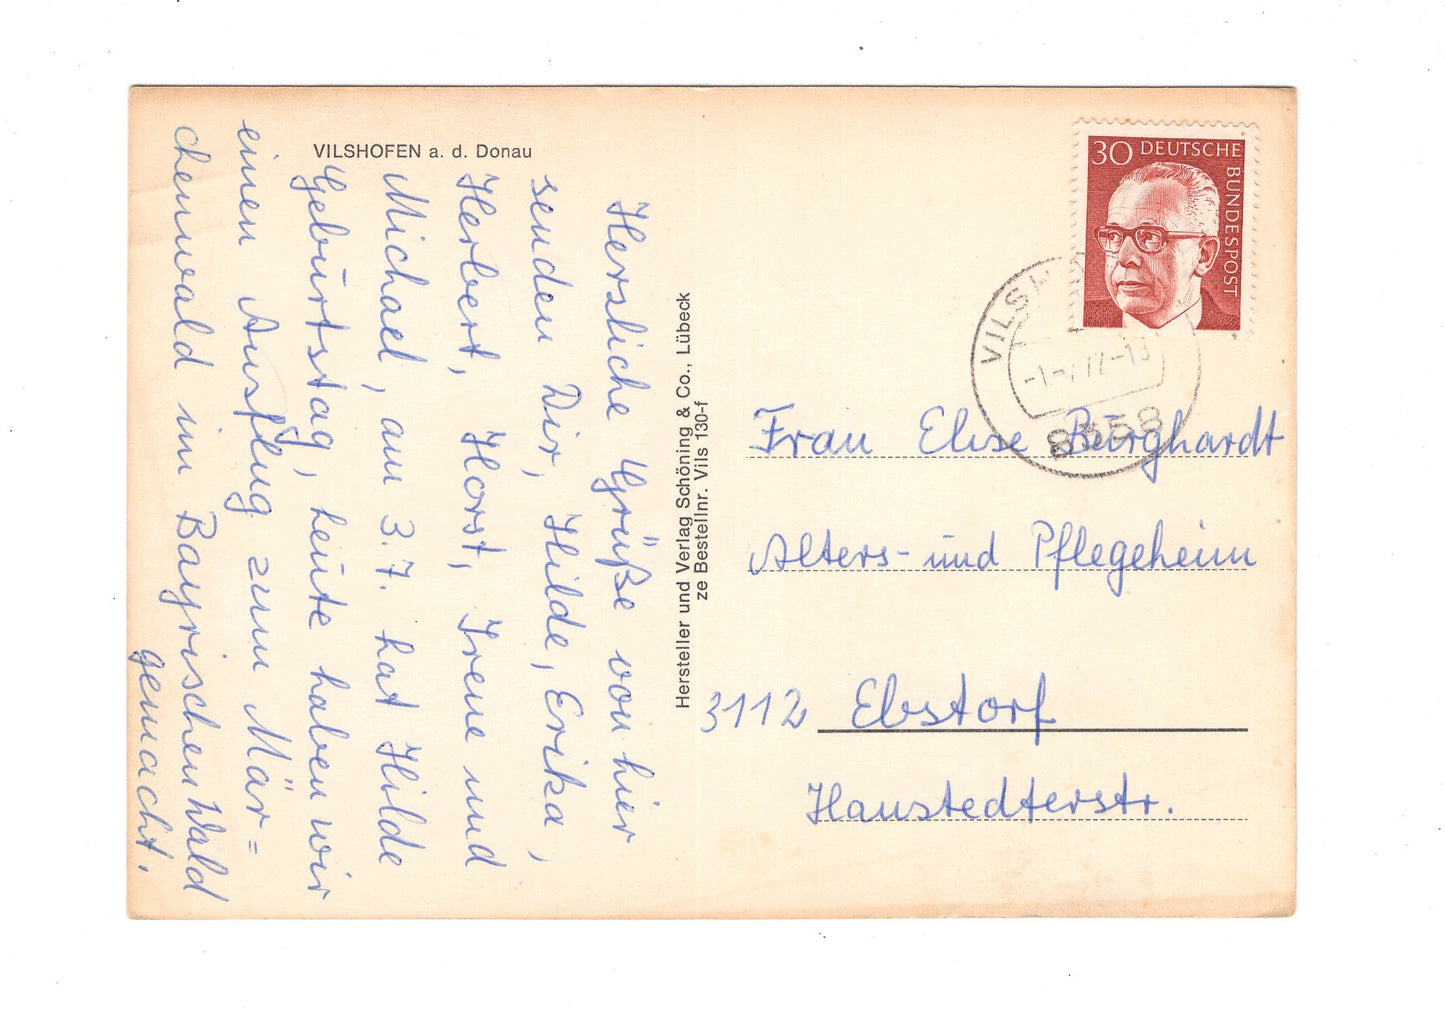 VILSHOFEN a. d. Donau
Hersliche Grüße von hier
senden Dir, Hilde, Erika,
Herbert, Horst, Irene und
Michael, am 3.7. hat Hilde
Geburtstag, heute haben wir
einen Ausflug zum Mär=
chenwald im Bayrischen Wald
gemacht.
Hersteller und Verlag Schöning & Co., Lübeck
ze Bestellnr. Vils 130-f
30 DEUTSCHE
BUNDESPOST
8358
Frau Elise Burghardt
Alters- und Pflegeheim
3112 Ebstorf
Hanstedterstr.